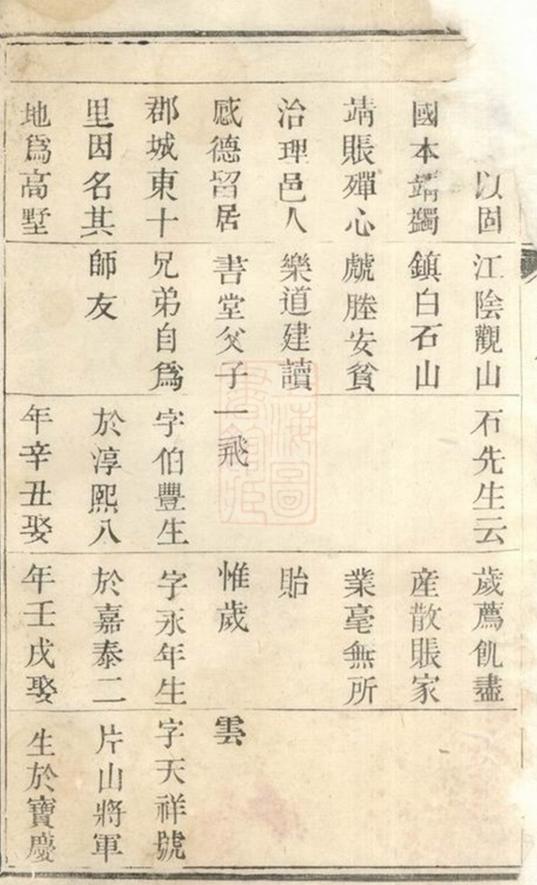 以固
國本靖蠲
靖賬殫心
治理邑人
感德留居
郡城東十
里因名其
地爲高墅
江陰觀山
鎮白石山
塍安貧
樂道建讀
書堂父子
兄弟自爲
師友
石先生云
一飛
字伯豐生
於淳熙八
年辛丑娶
歲薦飢盡
産散賬家
業毫無所
貽
惟歲
字永年生
於嘉泰二
年壬戌娶
雲
字天祥號
片山將軍
生於寶慶